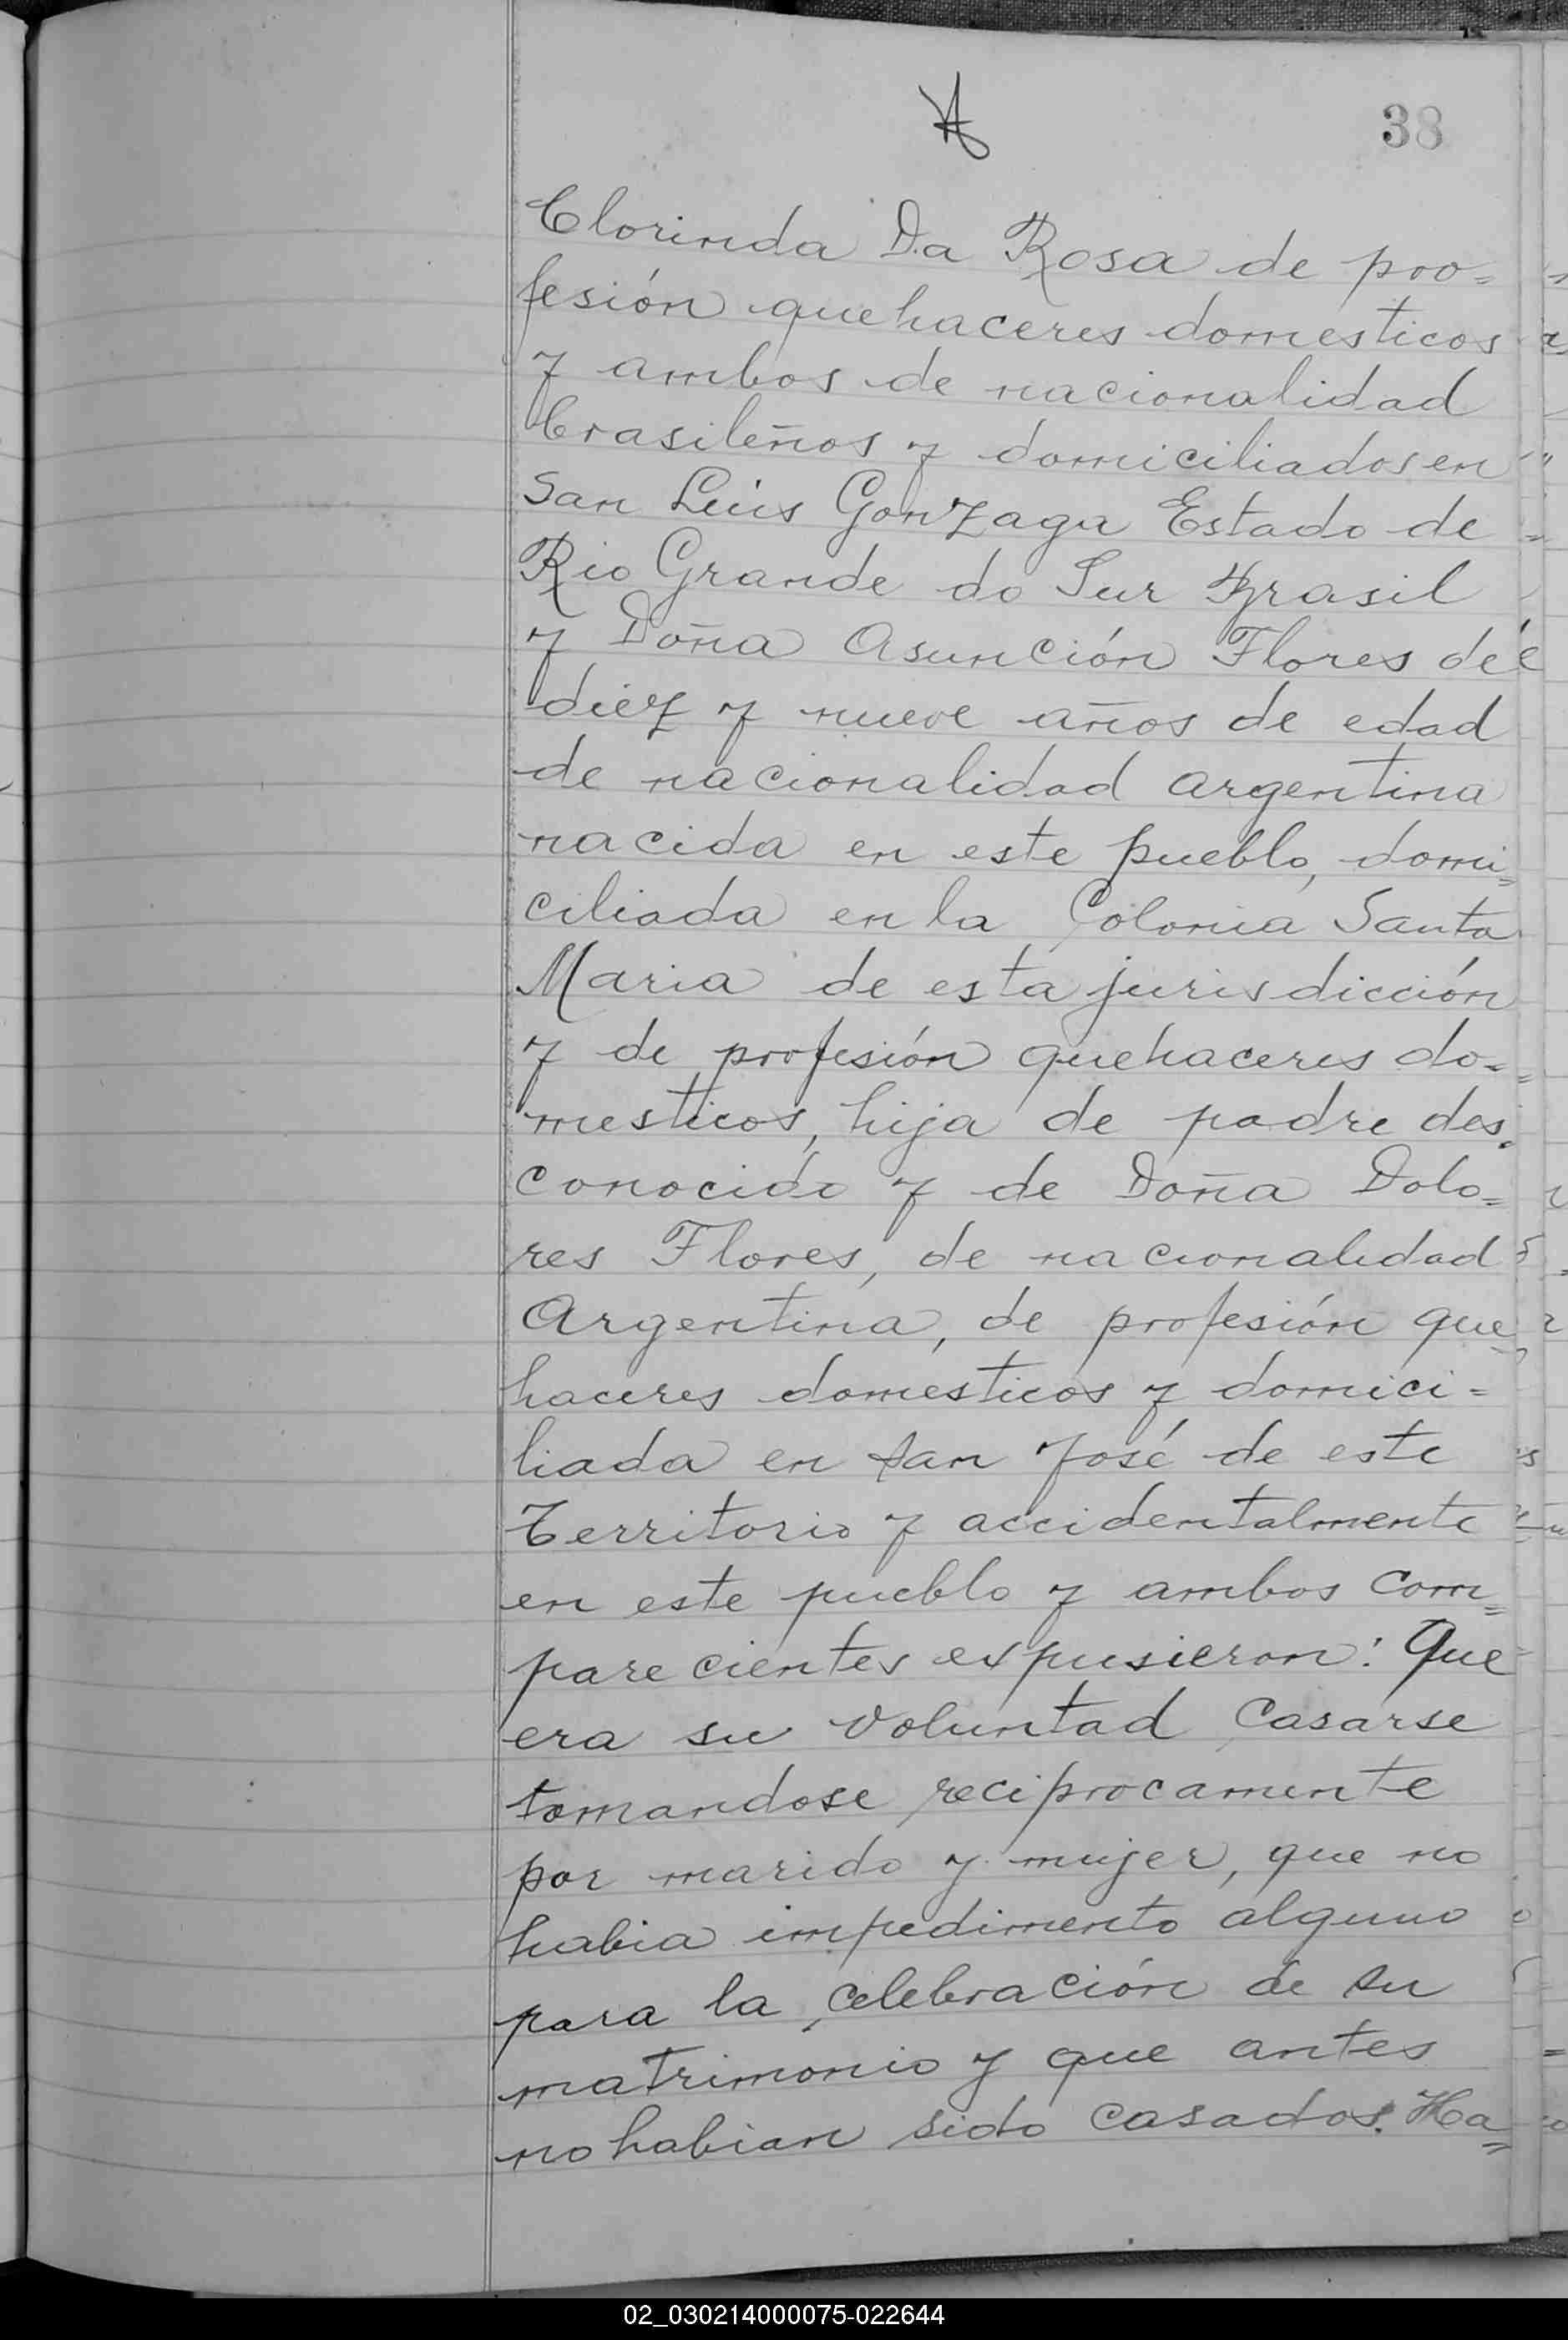 38
Clorinda Da Rosa de pro=
fesión quehaceres domesticos
y ambos de nacionalidad
brasileños y domiciliados en
San Luis Gonzaga Estado de
Rio Grande do Sur Brasil
y Doña Asunción Flores de
diez y nueve años de edad
de nacionalidad argentina
nacida en este pueblo, domi=
ciliada en la Colonia Santa
Maria de esta jurisdicción
y de profesión quehaceres do=
mesticos, hija de padre des=
conocido y de Doña Dolo=
res Flores, de nacionalidad
Argentina, de profesión que=
haceres domésticos y domici=
liada en San José de este
Territorio y accidentalmente
en este pueblo y ambos com=
parecientes expusieron: Que
era su voluntad casarse
tomandose reciprocamente
por marido y mujer, que no
habia impedimento alguno
para la celebración de su
matrimonio y que antes
no habian sido casados. Ha=
02_030214000075-022644